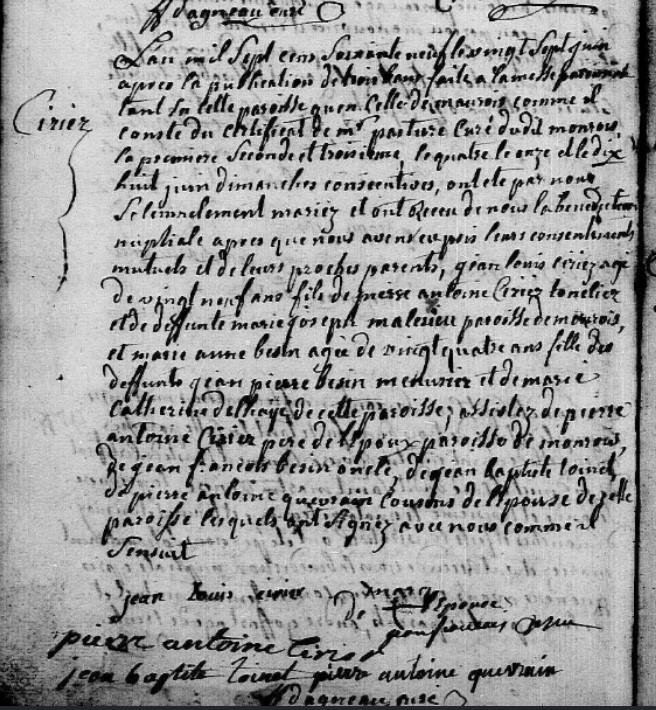 dagneau curé
Cirier
L'an mil Sept cens Soixante neuf le vingt Sept juin
apres la publication de trois bans faite a la messe paroissiale
tant en cette paroisse qu'en Celle de maurois comme il
conste du Certificat de mr pasture Curé dudit monrois,
la premiere Seconde et troisieme, le quatre le onze et le dix
huit juin dimanches consecutives, ont été par nous
Solemnelement mariez et ont Receu de nous la benediction
nuptiale apres que nous avons eu pris leurs consentements
mutuels et de leurs proches parents, jean louis cirier agé
de vingt neuf ans fils de pierre antoine Cirier tonelier
et de deffunte marie joseph malesieu paroisse de mourois,
et marie anne besin agée de vingt quatre ans fille des
deffunts jean pierre besin menusier et de marie
Catherine delhaye de cette paroisse, assistez de pierre
antoine Cirier pere de l'Epoux paroisse de monrois,
de jean francois besin oncle, de jean baptiste loinel,
de pierre antoine quevrain Cousins de l'Epouse de cette
paroisse lesquels ont Signez avec nous comme il
Sensuit
jean louis cirier marq
de l'Epouse
jean francois besin
pierre antoine Cirier
jean baptiste loinel pierre antoine quevrain
dagneau curé